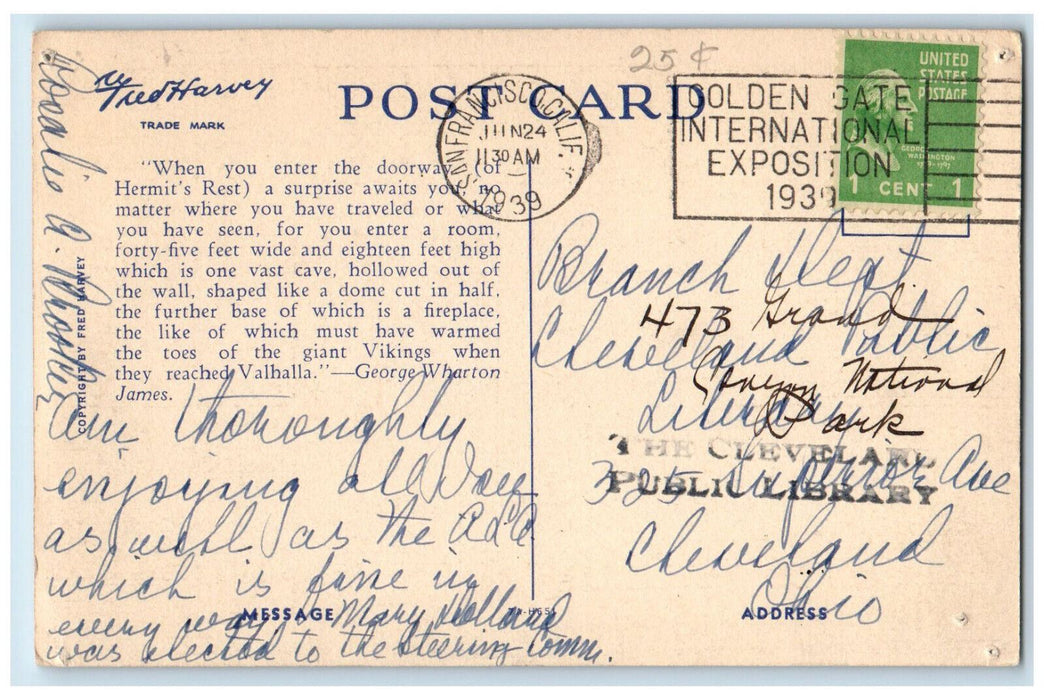 25¢
Fred Harvey
TRADE MARK
POST CARD
SAN FRANCISCO, CALIF.
JUN 24
11 30 AM
1939
GOLDEN GATE
INTERNATIONAL
EXPOSITION
1939
UNITED
STATES
POSTAGE
GEORGE
WASHINGTON
1789-1797
1 CENT 1
"When you enter the doorway (of
Hermit's Rest) a surprise awaits you, no
matter where you have traveled or what
you have seen, for you enter a room,
forty-five feet wide and eighteen feet high
which is one vast cave, hollowed out of
the wall, shaped like a dome cut in half,
the further base of which is a fireplace,
the like of which must have warmed
the toes of the giant Vikings when
they reached Valhalla."—George Wharton
James.
COPYRIGHT BY FRED HARVEY
Am thoroughly
enjoying all day
as well as the
which is fine in
every way. Mary Holland
was elected to the steering Comm.
A.
MESSAGE
Branch Dept.
Cleveland Public
Library
325 Superior Ave
Cleveland
Ohio
473 Grand
Canyon National
Park
THE CLEVELAND
PUBLIC LIBRARY
ADDRESS